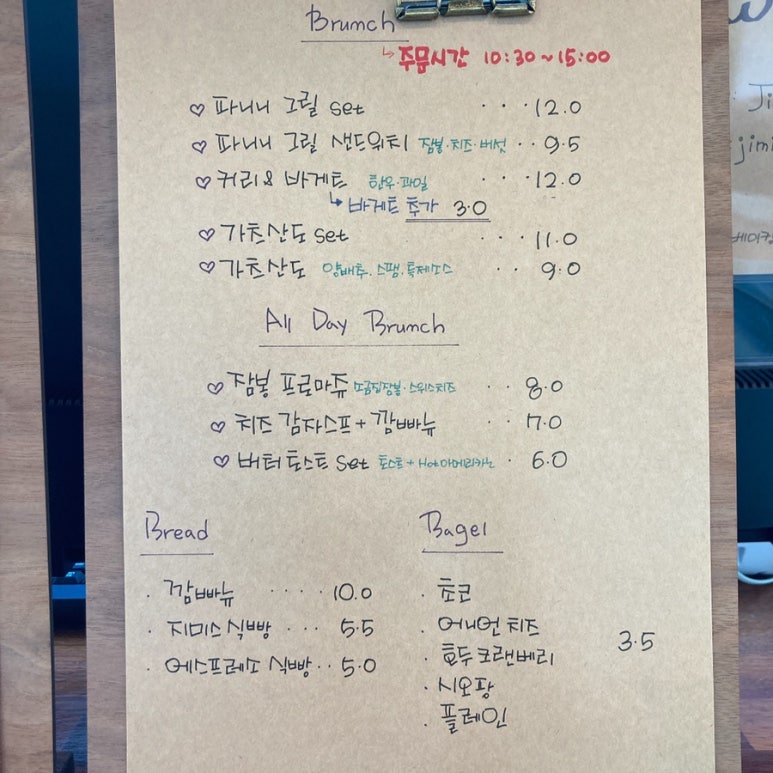 Brunch
↳ 주문시간 10:30~15:00
♡ 파니니 그릴 set ···12.0
♡ 파니니 그릴 샌드위치 잠봉·치즈·버섯 ··9.5
♡ 커리 & 바게트 한우·과일 ···12.0
↳ 바게트 추가 3.0
♡ 가츠산도 set ···11.0
♡ 가츠산도 양배추·스팸·특제소스 ··9.0
All Day Brunch
♡ 잠봉 프로마쥬 스위스치즈 ··8.0
♡ 치즈 감자스프 + 깜빠뉴 ··7.0
♡ 버터 토스트 set 토스트 + Hot아메리카노 ·6.0
Bread
· 깜빠뉴 ····10.0
· 지미스 식빵 ···5.5
· 에스프레소 식빵 ··5.0
Bagel
· 초코
· 어니언 치즈
· 호두 크랜베리
· 시오팡
· 플레인
3.5
Ji
jimi
베이킹